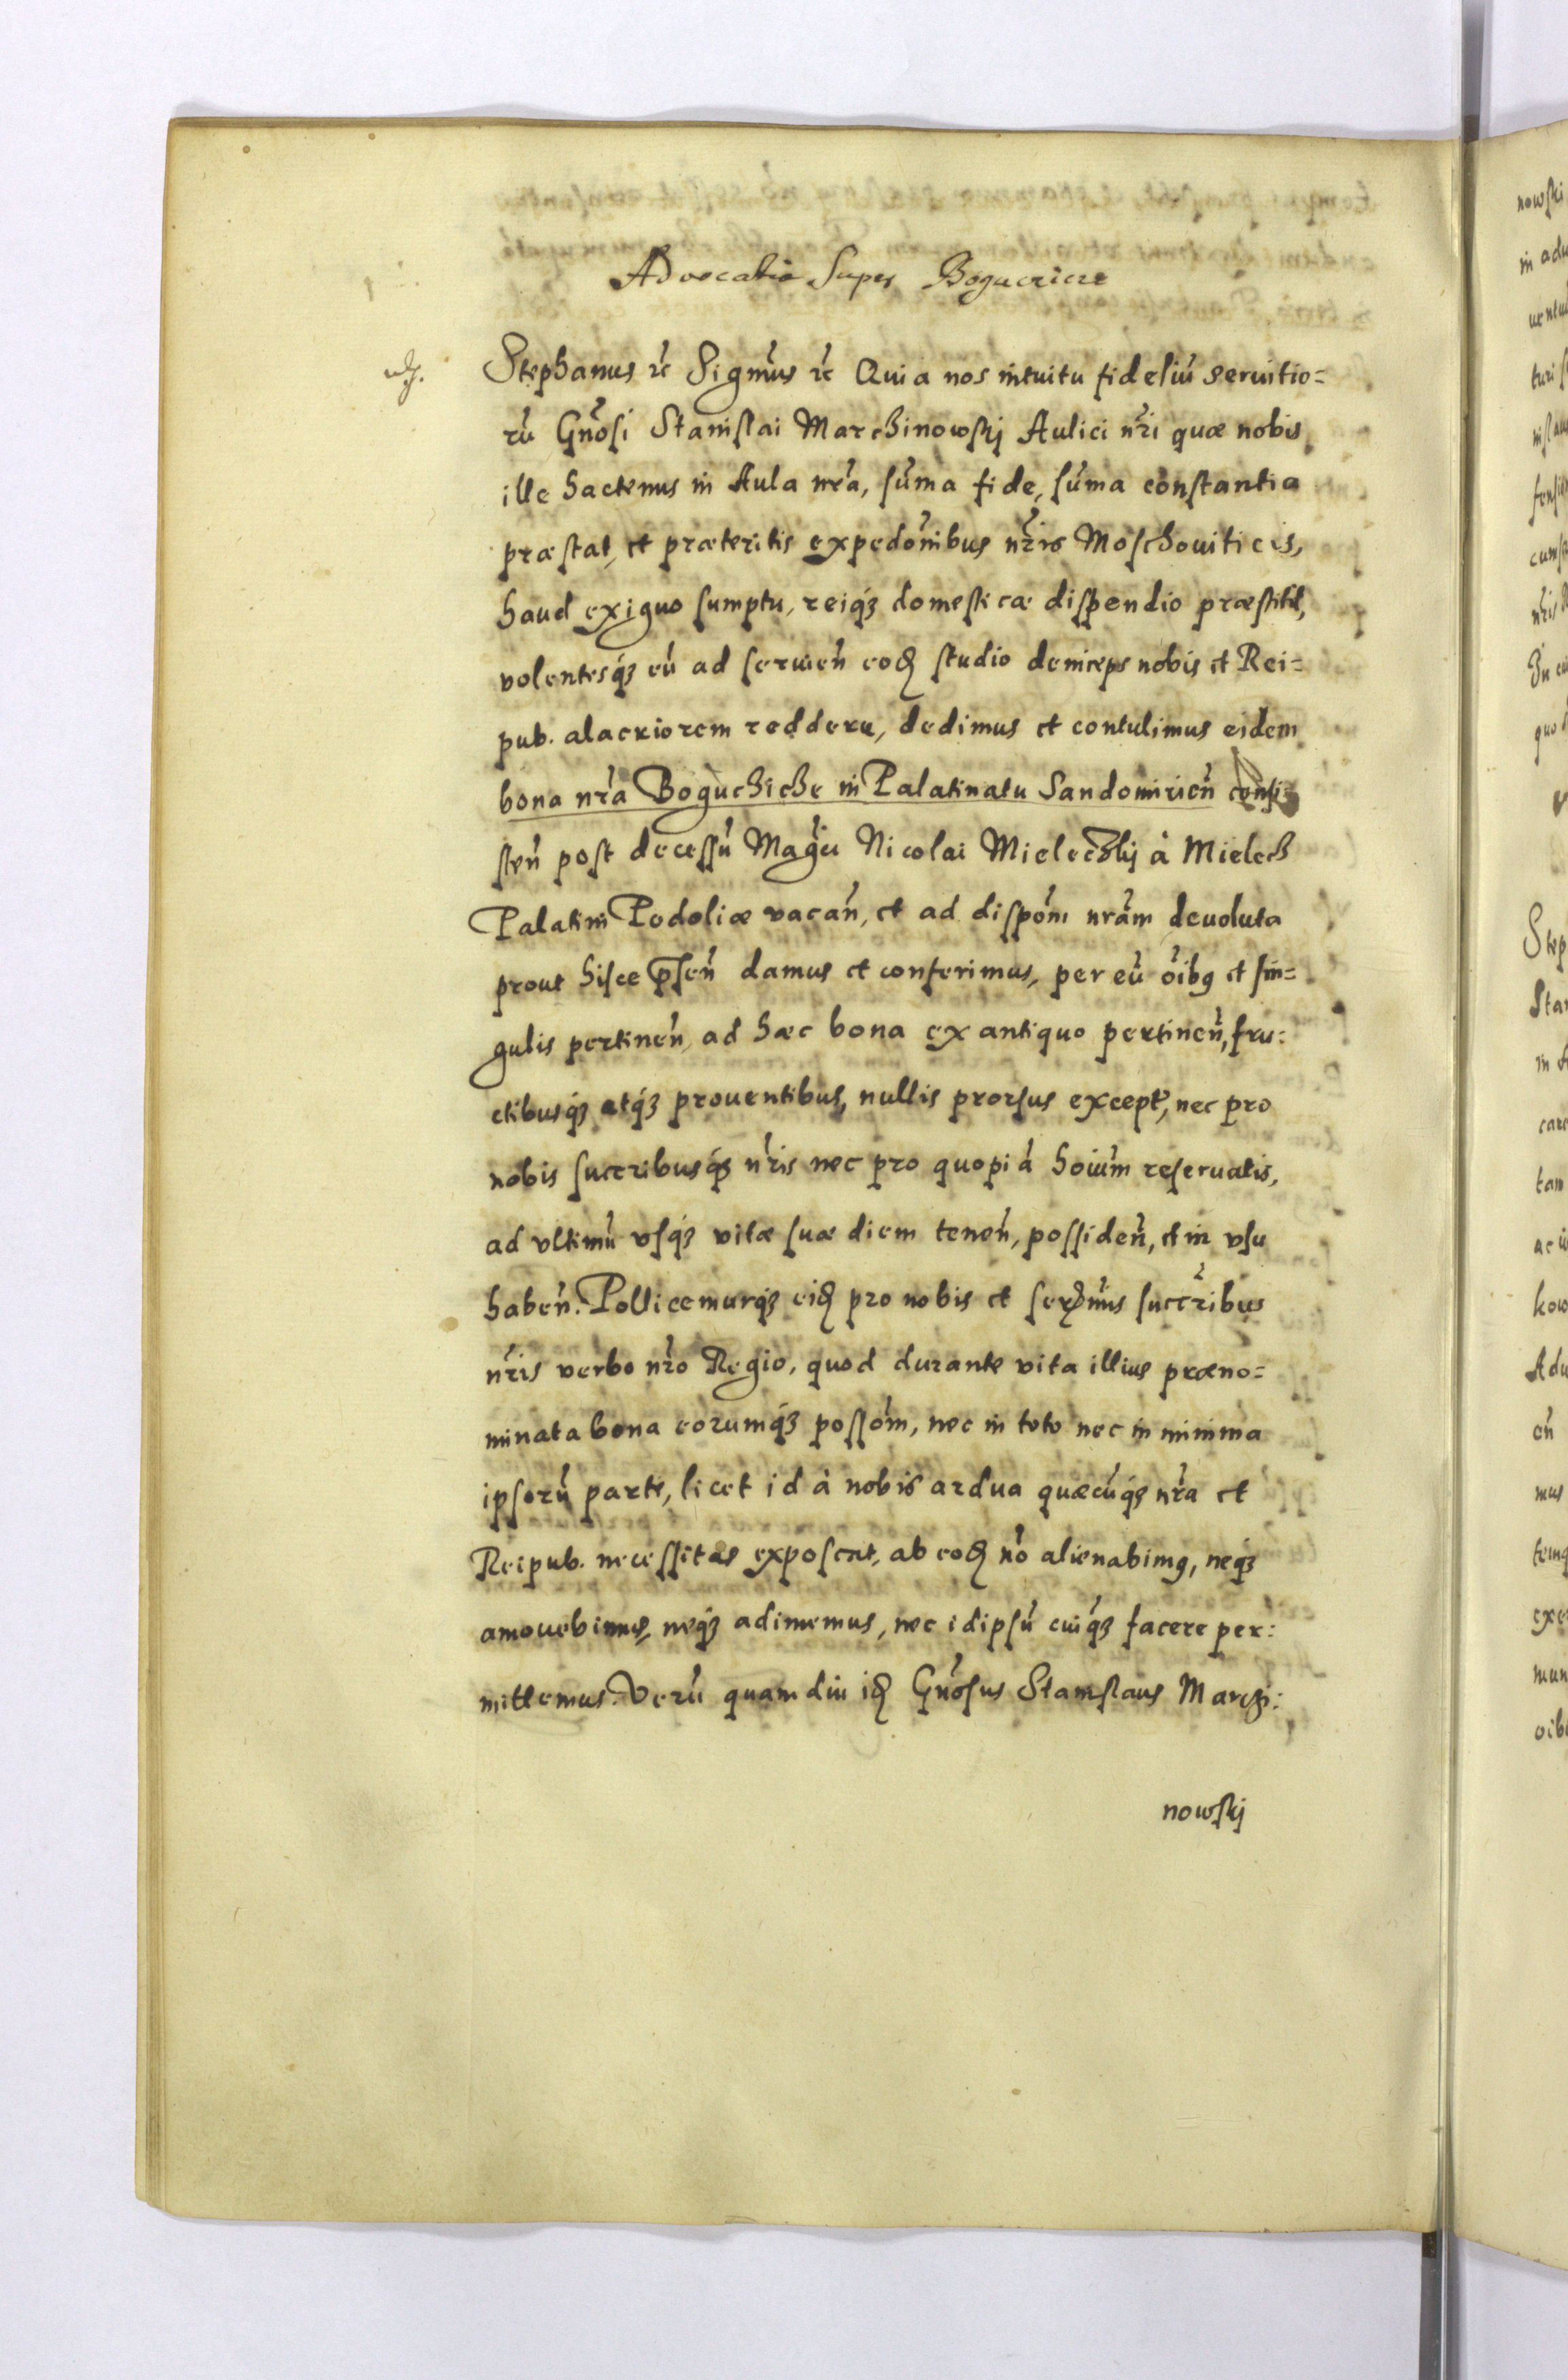 Advocatia Super Bogucricze
Stephanus &c Sigm̃us &c Quia nos intuitu fideliũ seruitio=
rũ Gñosi Stanislai Marchinowskj Aulici nr̃i quæ nobis
ille hactenus in Aula nrã, sũma fide, sũma constantia
præstat, et præteritis expedõnibus nr̃is Moschouiticis,
haud exiguo sumptu, reiqꝫ domesticæ dispendio præstitit,
volentesqꝫ eũ ad seruieñ eoꝺ̃ studio deinceps nobis et Rei=
pub. alacriorem reddere, dedimus et contulimus eidem
bona nrã Boguchiche in Palatinatu Sandomirieñ consi=
steñ post decessũ Magci Nicolai Mieleczkij à Mielech
Palatini Podoliæ vacañ, et ad dispõni nrãm deuoluta
prout hisce p̃señ damus et conferimus, per eũ oĩbꝰ et sin=
gulis pertineñ, ad hæc bona ex antiquo pertineñ, fru:
ctibusqꝫ atqꝫ prouentibus, nullis prorsus except̃, nec pro
nobis succribusqꝫ nr̃is nec pro quopiã hoiũm reseruatis,
ad vltimũ vsqꝫ vitæ suæ diem teneñ, possideñ, et in vsu
habeñ. Pollicemurqꝫ eiꝺ̃ pro nobis et serẽmis succr̃ibus
nr̃is verbo nrõ Regio, quod durante vita illius præno=
minata bona eorumqꝫ possõm, nec in toto nec in minima
ipsorũ parte, licet id à nobis ardua quæcũqꝫ nrã et
Reipub. necessitas exposcat, ab eoꝺ̃ nõ alienabimꝰ, neqꝫ
amouebimus, neqꝫ adimemus, nec idipsũ cuiqꝫ facere per:
mittemus. Verũ quamdiu iꝺ̃ Gñosus Stanislaus March:
nowskj